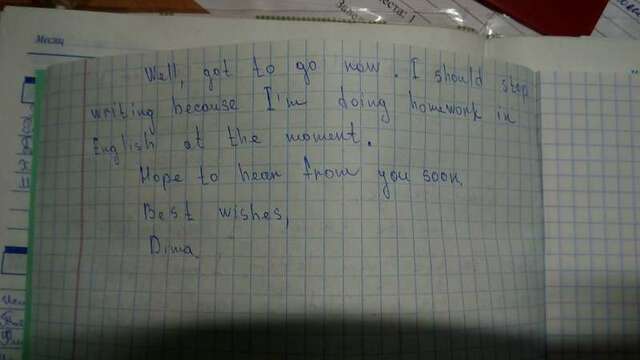 Месяц
Well, got to go now. I should stop
writing because I'm doing homework in
English at the moment.
Hope to hear from you soon.
Best wishes,
Dima